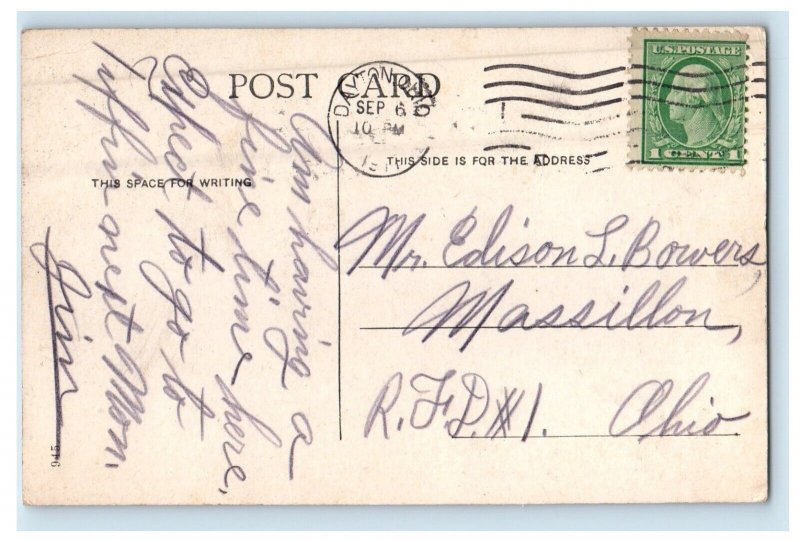 POST CARD
DAYTON OHIO
SEP 6
10 PM
U.S. POSTAGE
1 CENT 1
THIS SPACE FOR WRITING
THIS SIDE IS FOR THE ADDRESS
Am having a
fine time here.
Expect to go to
Tiffin next Mon.
Mr. Edison L. Bowers,
Massillon,
R.F.D.#1. Ohio
945